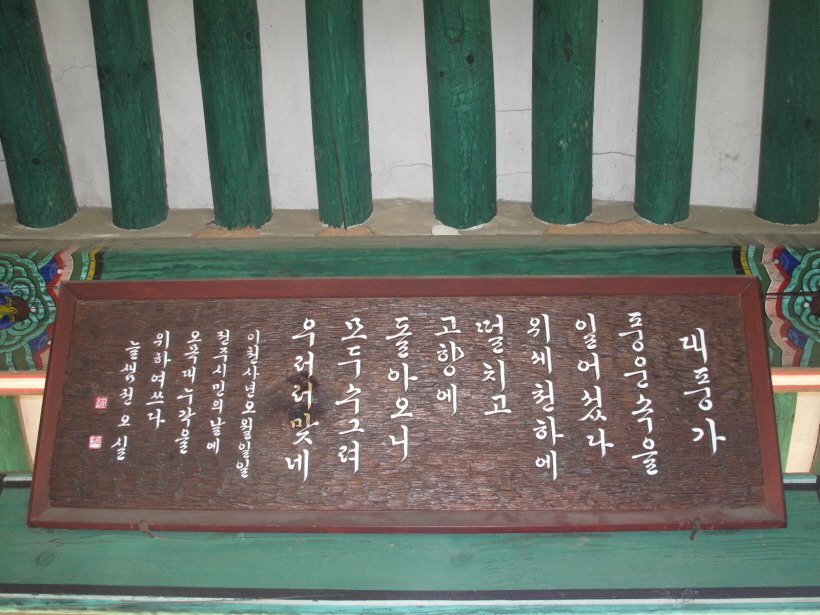 대풍가
풍운속을
일어섰다
위세천하에
떨치고
고향에
돌아오니
모두수그려
우러러맞네
이천사년오월일일
전주시민의날에
오목대누각을
위하여쓰다
늘샘권오실